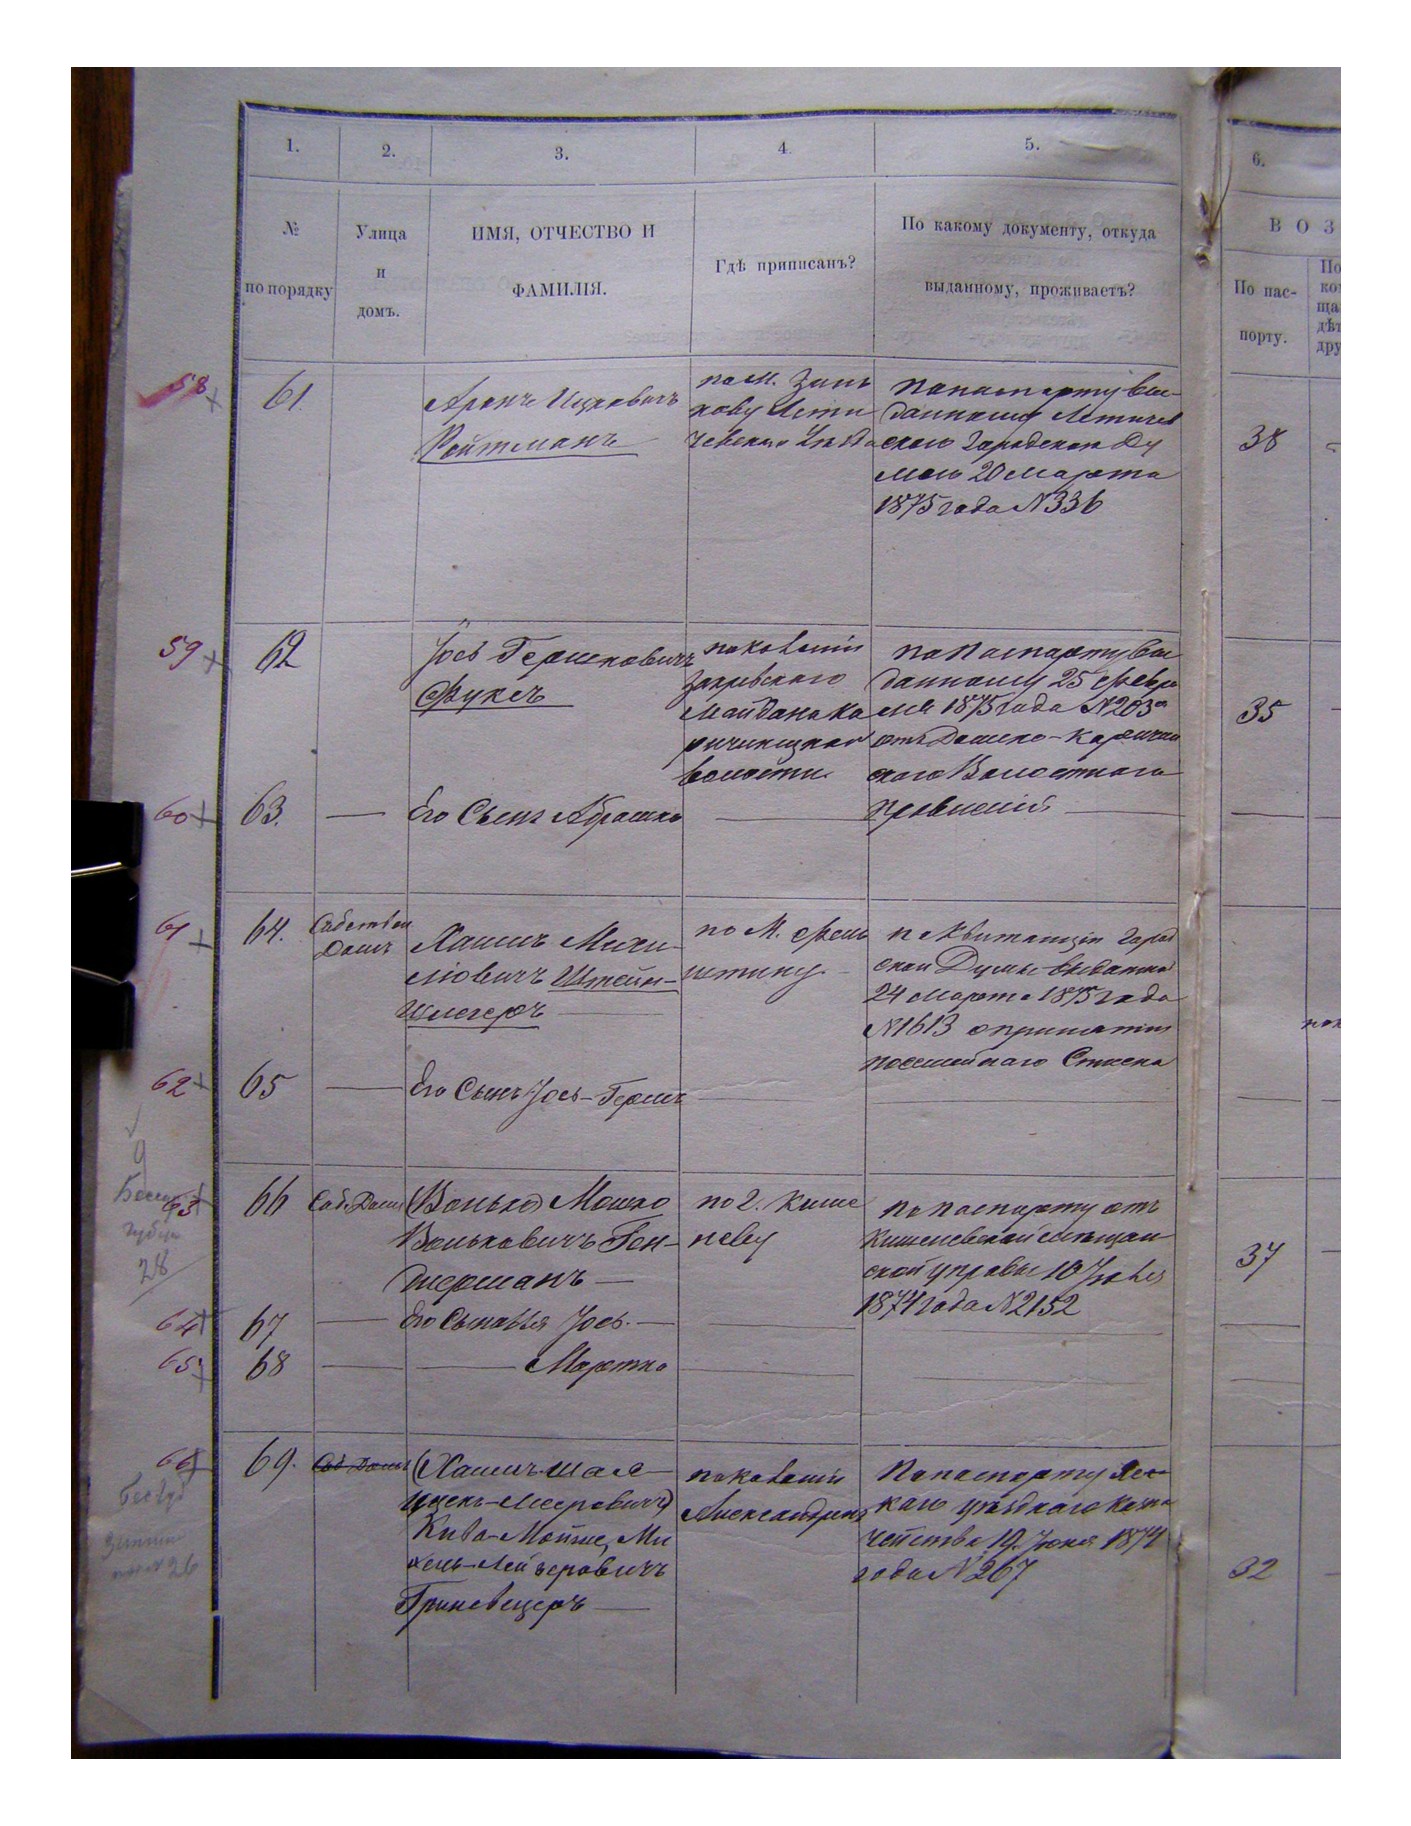 1.
2.
3.
4.
5.
6.
№
по порядку
Улица
и
домъ.
ИМЯ, ОТЧЕСТВО И
ФАМИЛІЯ.
Гдѣ приписанъ?
По какому документу, откуда
выданному, проживаетъ?
ВОЗ
По пас-
порту.
По
ко
ща
дѣт
дру
58
61.
Аронъ Ицковичъ
Ройтманъ
по м. Зинь
кову Лети
чевскаго Уѣзда
По паспорту вы-
данному Летичев
скою Городскою Ду
мою 20 Марта
1875 года N 336
38
59
62
Іось Гершковичъ
Фуксъ
по колоніи
Майдана Ка
ричинецкой
волости
По паспорту вы
данному 25 Февра
ля 1875 года N 203
скаго Волостнаго
Правленія
35
60
63.
Его Сынъ Абрашко
61
64.
Собствен
Домъ
Хаимъ Михи
ліовичъ Штейн-
шлегеръ
по М. Фель
штину
по Квитанціи Город
ской Думы выданна
24 Марта 1875 года
N 1613 о принятіи
посемейнаго Списка
62
65
Его Сынъ Іось-Гершъ
9
63
66
Соб. Домъ
(Волько) Мошко
Вольковичъ Ген-
дшерманъ
по г. Кише
неву
По паспорту отъ
Кишеневской мѣщан
ской управы 10
1874 года N 2152
37
28
64
67
Его Сыновья Іось.
65
68
Мортко
66
69.
Соб Домъ
(Хаимъ Шая
Ицекъ-Мееровичъ)
Кива-Мойше, Ми
хель-Лейзеровичъ
Гриневецеръ
по колоніи
По паспорту
каго уѣзднаго Казна
чейства 19 Іюня 1874
года N 267
32
N 26